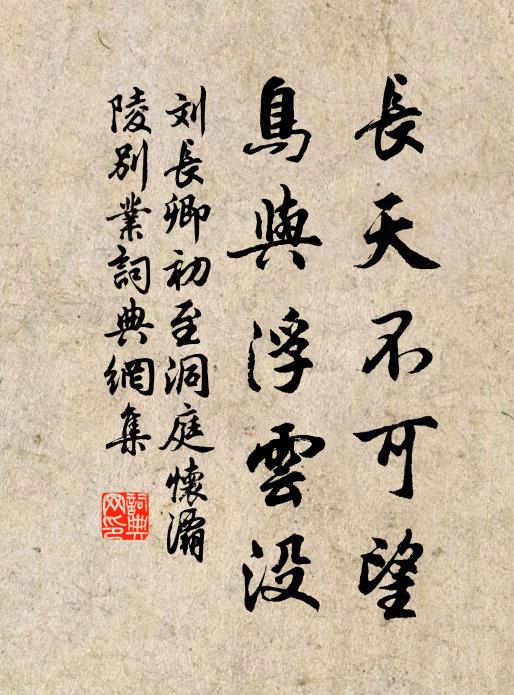 長天不可望
鳥與浮雲没
刘長卿初至洞庭懷灞
陵别業詞典網集
詞典
网印